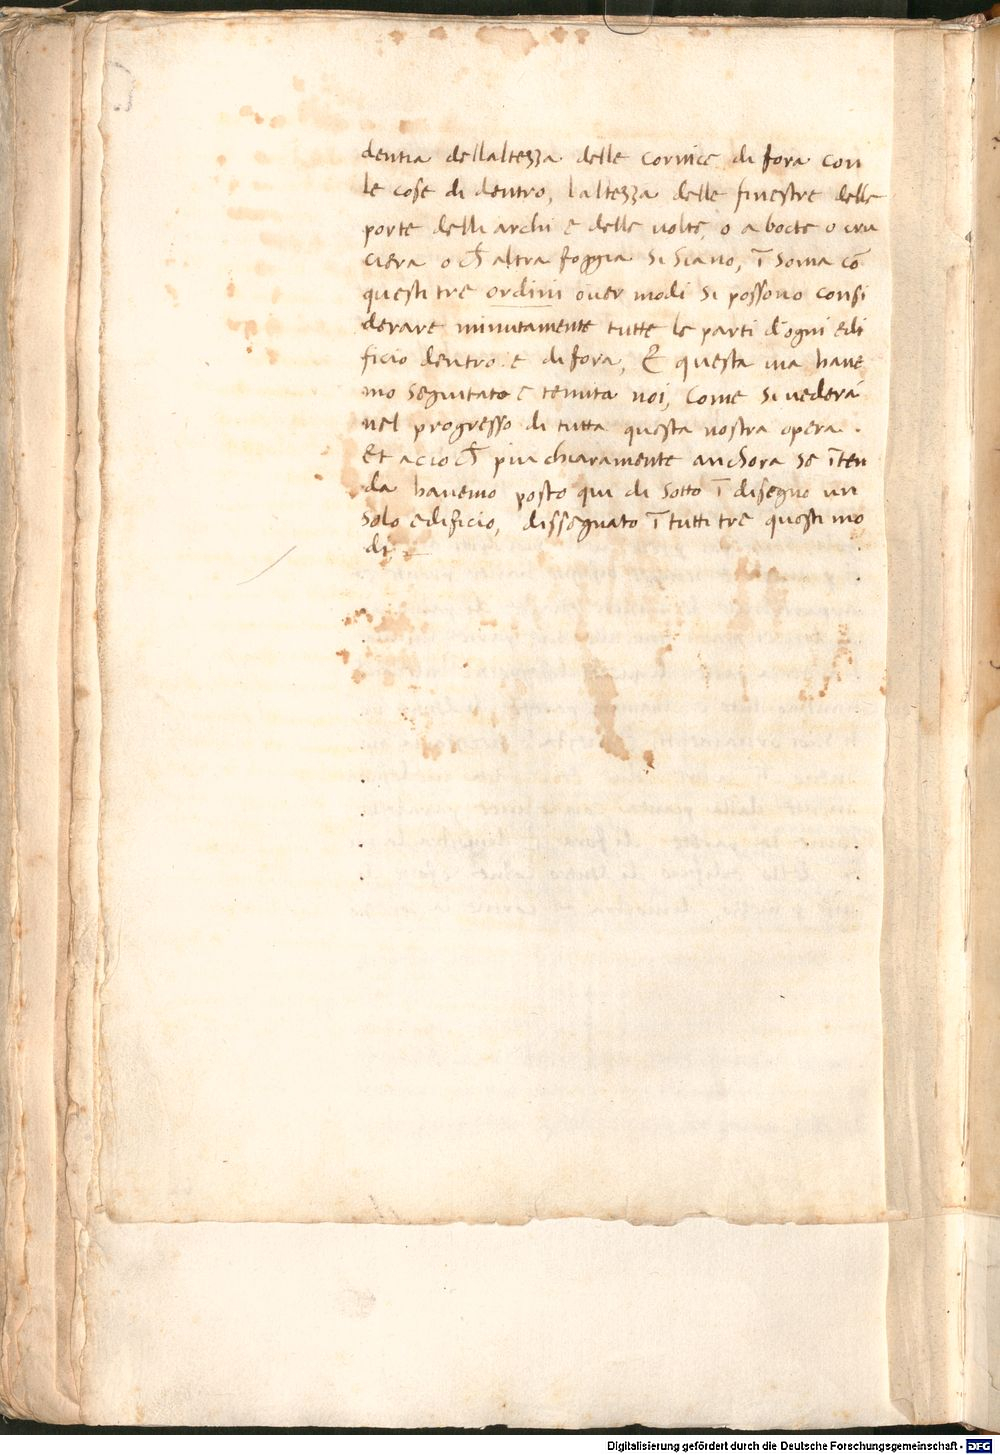 dentia dellaltezza delle cornice di fora con
le cose di dentro, laltezza delle finestre delle
porte delli archi e delle volte, o a bocte o cru
ciera o ch̃ altra foggia si siano, ĩ soma cõ
questi tre ordini over modi si possono consi
derare minutamente tutte le parti d'ogni edi
ficio dentro e di fora, Et questa via have
mo seguitato e tenuta noi, come si vederá
nel progresso di tutta questa nostra opera .
Et acio ch̃ piu chiaramente anchora se ĩten
da havemo posto qui di sotto ĩ disegno un
solo edificio, dissegnato ĩ tutti tre questi mo
di,
Digitalisierung gefördert durch die Deutsche Forschungsgemeinschaft - DFG